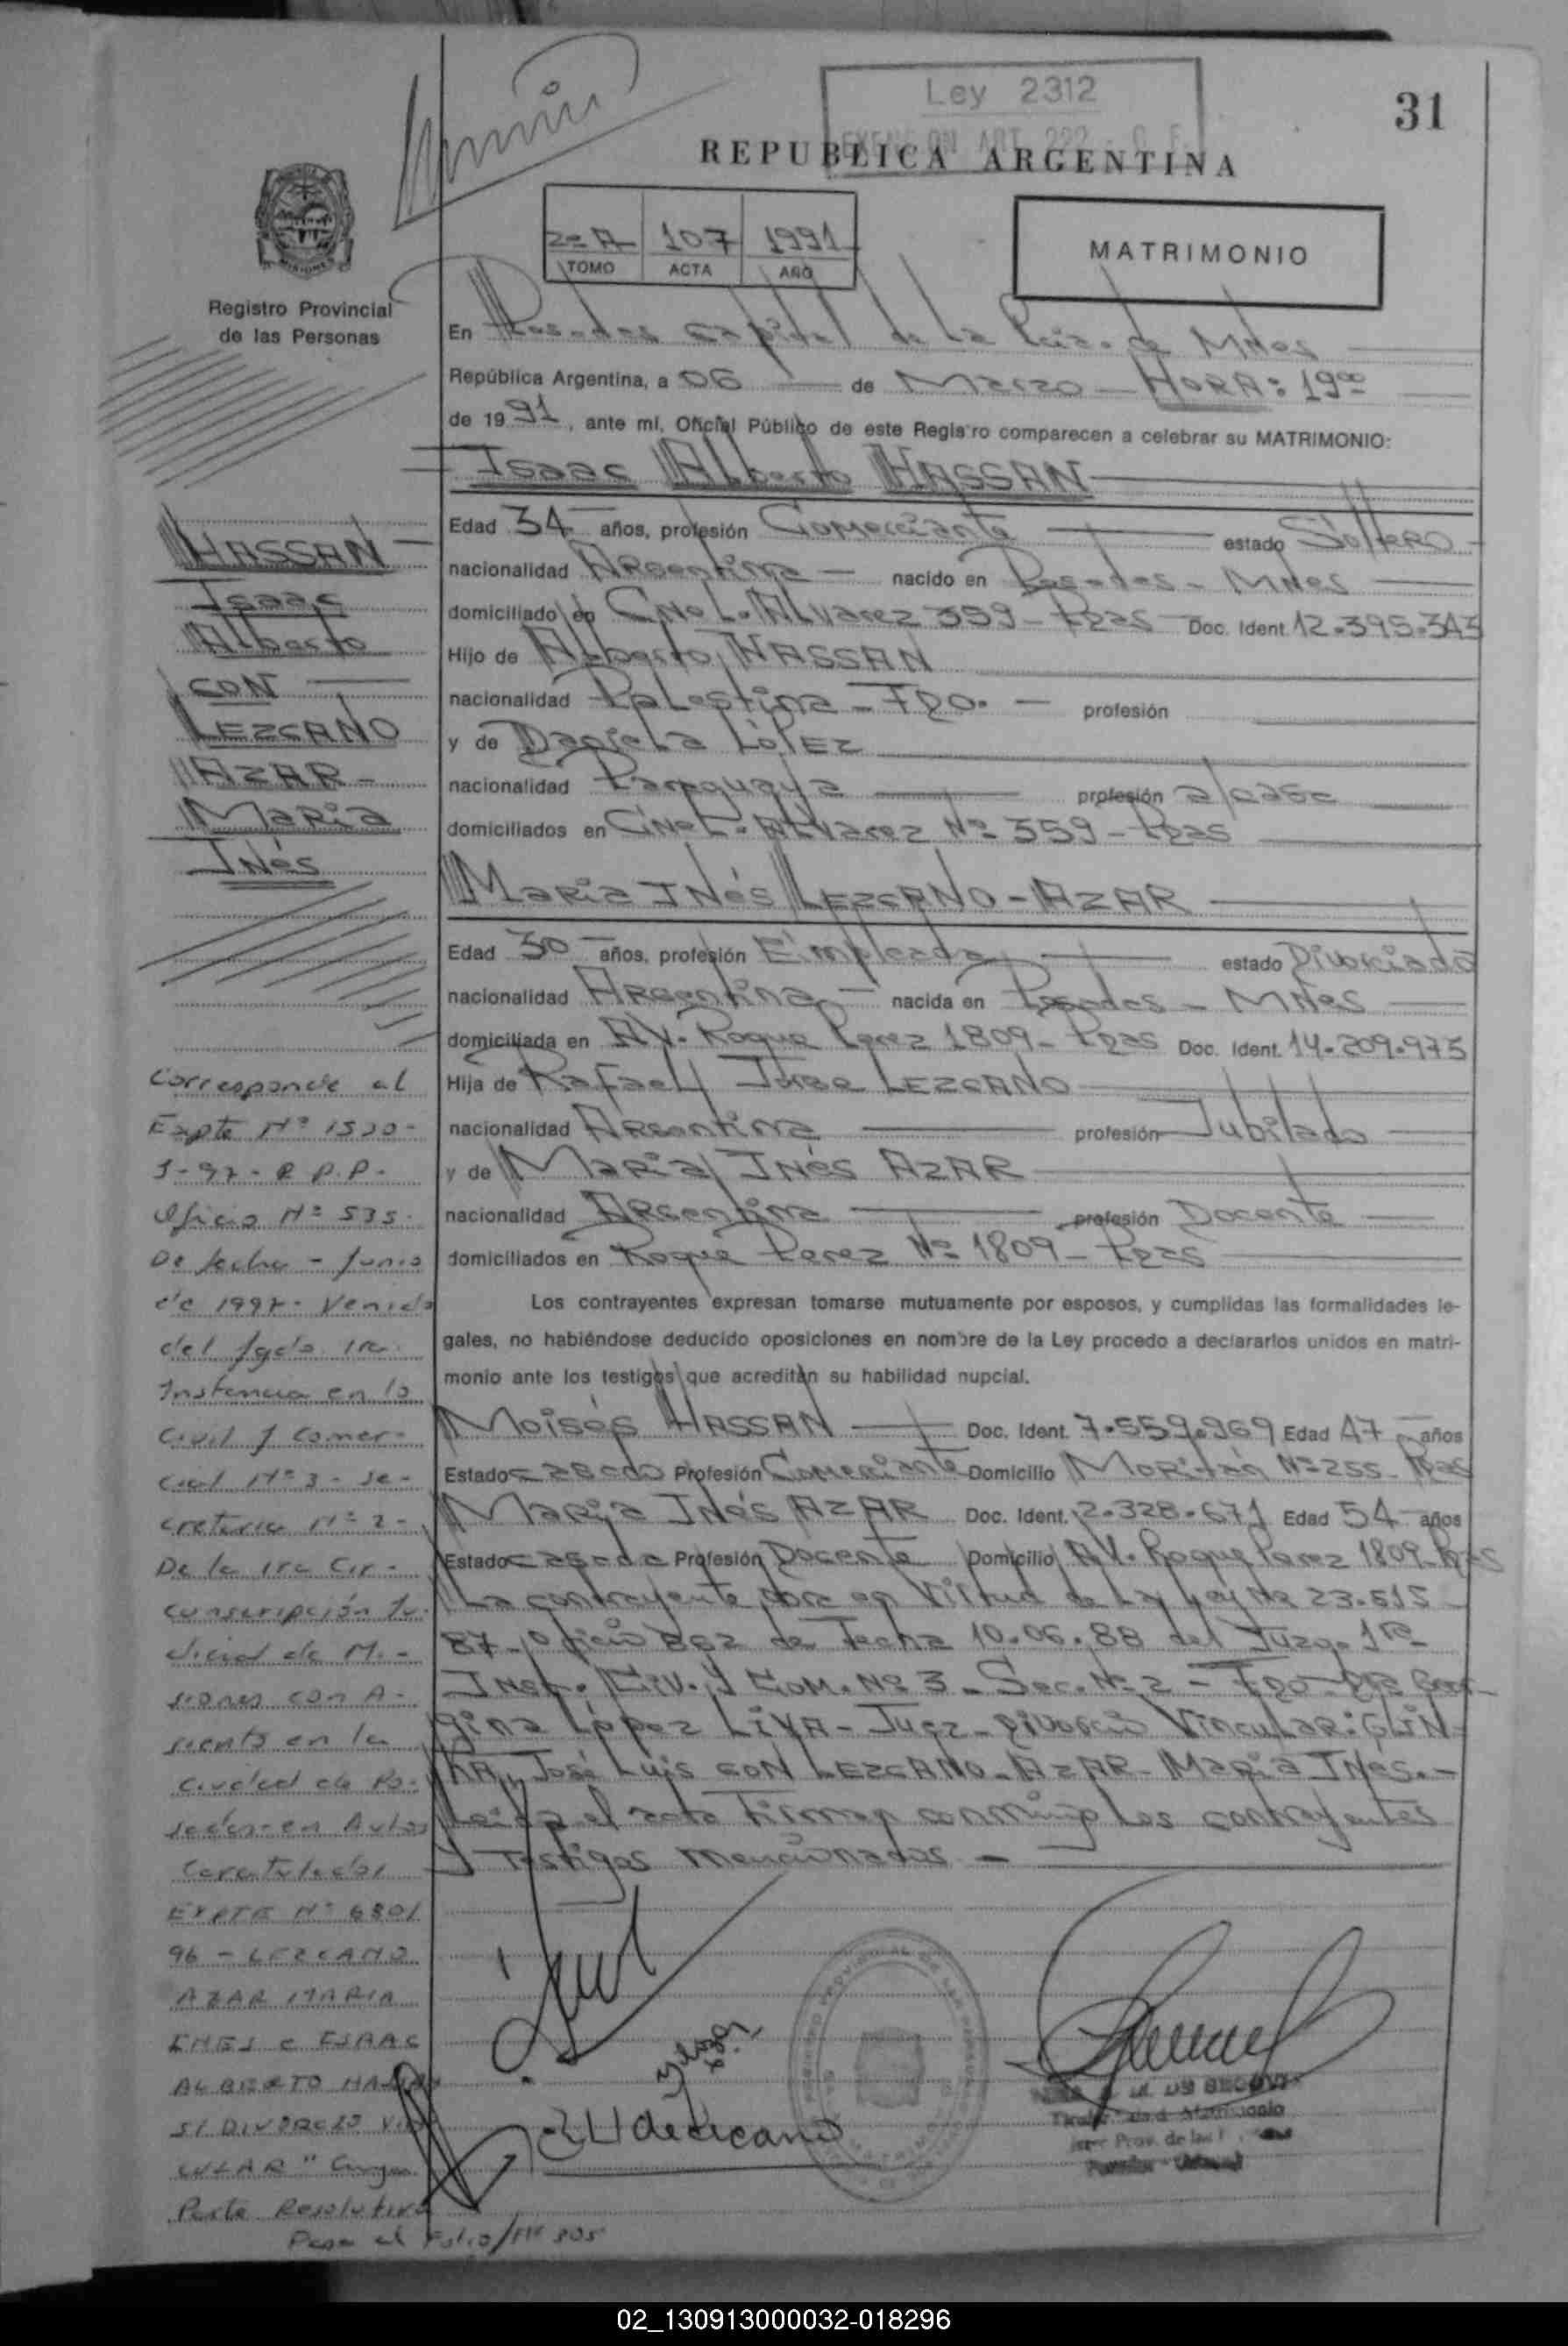 Ley 2312
31
REPUBLICA ARGENTINA
2º A 107 1991
TOMO ACTA AÑO
MATRIMONIO
Registro Provincial
de las Personas
En Posadas Capital de la de Mnes
República Argentina, a 06 de Marzo - HORA: 19⁰⁰
de 1991, ante mí, Oficial Público de este Registro comparecen a celebrar su MATRIMONIO:
Isaac Alberto HASSAN
Edad 34 años, profesión Comerciante estado Soltero
nacionalidad Argentina nacido en Posadas - Mnes
domiciliado en Cnel. Alvarez 359 - Pdas Doc. Ident. 12.395.343
Hijo de Alberto HASSAN
nacionalidad Palestina - Fdo. profesión
y de Daniela López
nacionalidad Paraguaya profesión a/casa
domiciliados en Cnel. Alvarez Nº 359 - Pdas
Maria Inés LEZCANO - AZAR
Edad 30 años, profesión Empleada estado Divorciada
nacionalidad Argentina nacida en Posadas - Mnes
domiciliada en Av. Roque Perez 1809 - Pdas Doc. Ident. 14.209.975
Hija de Rafael Jorge LEZCANO
nacionalidad Argentina profesión Jubilado
y de Maria Inés AZAR
nacionalidad Argentina profesión Docente
domiciliados en Roque Perez Nº 1809 - Pdas
Los contrayentes expresan tomarse mutuamente por esposos, y cumplidas las formalidades le-
gales, no habiéndose deducido oposiciones en nombre de la Ley procedo a declararlos unidos en matri-
monio ante los testigos que acreditan su habilidad nupcial.
Moisés HASSAN Doc. Ident. 7.559.969 Edad 47 años
Estado casado Profesión Comerciante Domicilio Moritán Nº 255 - Pdas
Maria Inés AZAR Doc. Ident. 2.328.671 Edad 54 años
Estado casada Profesión Docente Domicilio Av. Roque Perez 1809 - Pdas
La contrayente lo hace en Virtud de la Ley Nº 23.515
87 - Oficio 862 de Fecha 10.06.88 del Juzg. 1ra
Inst. Civ. y Com. Nº 3 - Sec. Nº 2 - Fdo - Dra Geor-
gina López LIVA - Juez - Divorcio Vincular: GLIN-
KA, José Luis CON LEZCANO - AZAR - Maria Inés. -
Leida el acta firman conmigo los contrayentes
y testigos mencionados -
HASSAN
Isaac
Alberto
CON
LEZCANO
AZAR -
Maria
Inés
Corresponde al
Expte Nº 1520 -
J - 97 - R P.P. -
Oficio Nº 535 -
De fecha - Junio
de 1997 - Venido
del Jgdo. 1ra.
Instancia en lo
Civil y Comer-
cial Nº 3 - Se-
cretaria Nº 2 -
De la 1ra Cir-
cunscripción Ju-
dicial de Mi-
siones con A-
siento en la
ciudad de Po-
sadas - en Autos
Caratulados
EXPTE Nº 680/
96 - LEZCANO
AZAR MARIA
INES c ISAAC
ALBERTO HASSAN
S/ DIVORCIO VIN
CULAR" Cuya
Parte Resolutiva
Pasa al Folio/Nº 305
02_130913000032-018296